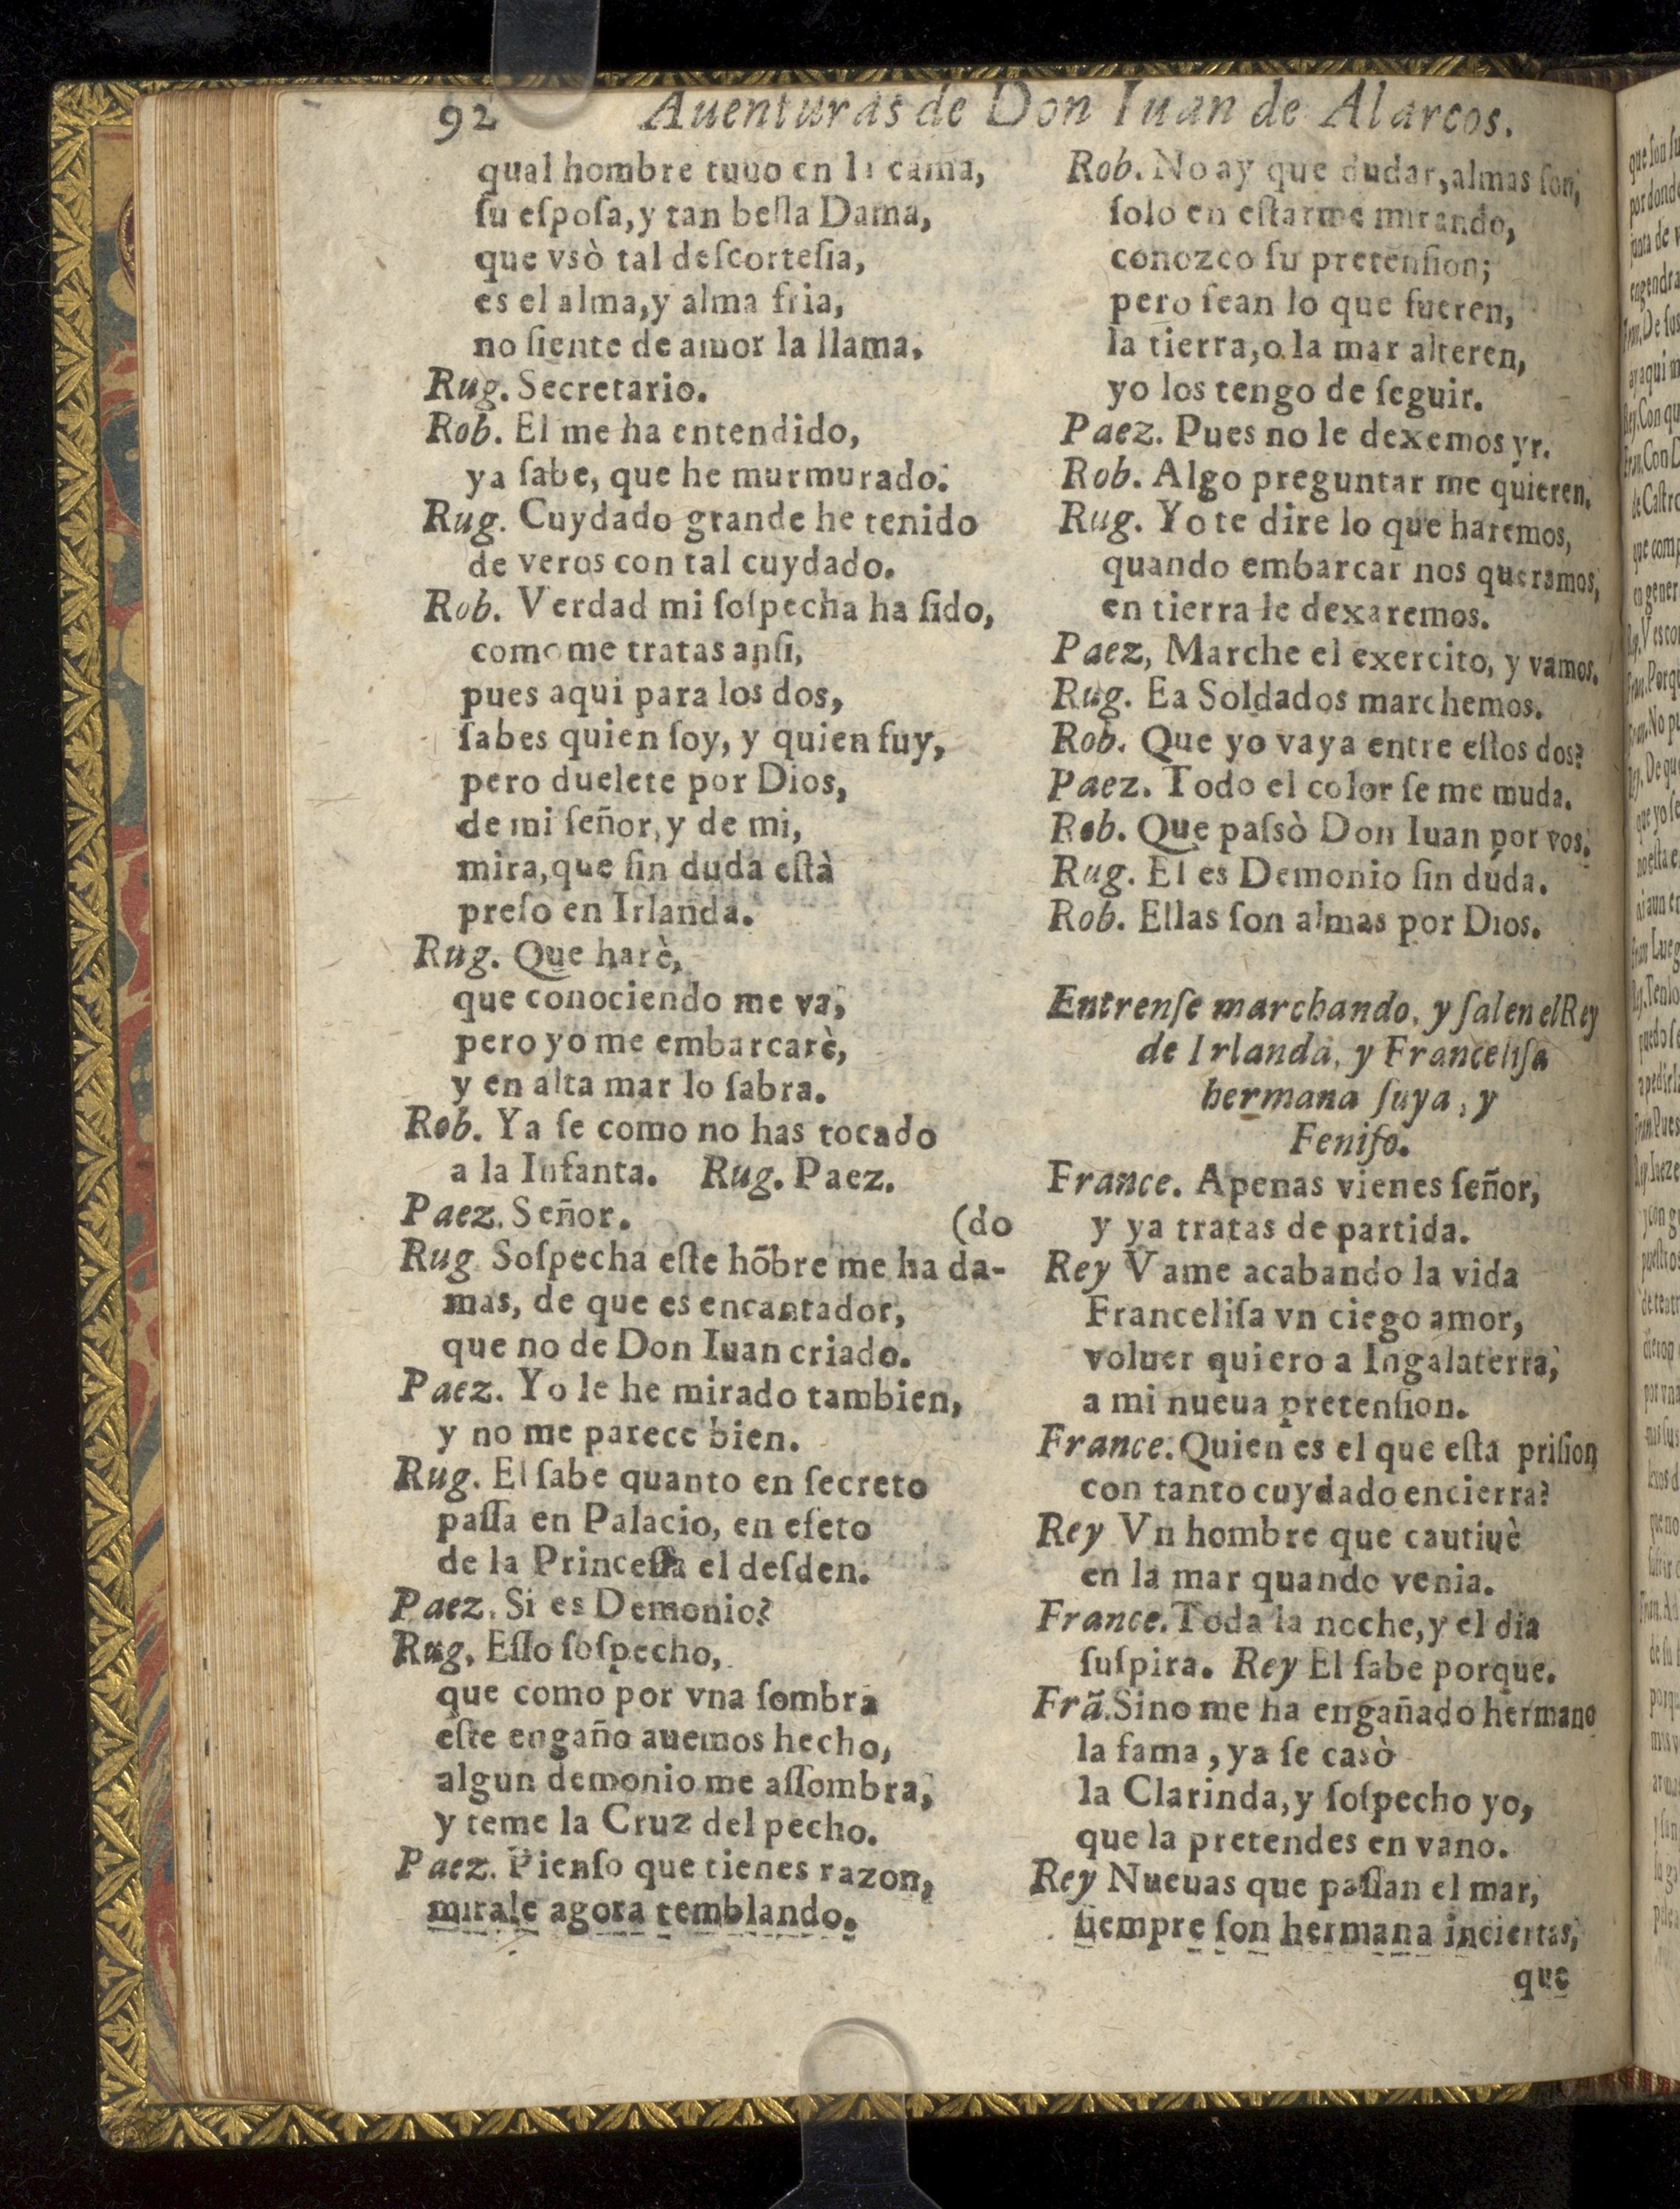 92 Auenturas de Don Iuan de Alarcos.
qual hombre tuuo en la cama,
ſu eſpoſa, y tan bella Dama,
que vsò tal deſcorteſia,
es el alma, y alma fria,
no ſiente de amor la llama.
Rug. Secretario.
Rob. El me ha entendido,
ya ſabe, que he murmurado.
Rug. Cuydado grande he tenido
de veros con tal cuydado.
Rob. Verdad mi ſoſpecha ha ſido,
como me tratas anſi,
pues aqui para los dos,
ſabes quien ſoy, y quien fuy,
pero duelete por Dios,
de mi ſeñor, y de mi,
mira, que ſin duda eſtà
preſo en Irlanda.
Rug. Que harè,
que conociendo me va,
pero yo me embarcarè,
y en alta mar lo ſabra.
Rob. Ya ſe como no has tocado
a la Infanta. Rug. Paez.
Paez. Señor. (do
Rug Soſpecha eſte hõbre me ha da-
mas, de que es encantador,
que no de Don Iuan criado.
Paez. Yo le he mirado tambien,
y no me parece bien.
Rug. El ſabe quanto en ſecreto
paſſa en Palacio, en efeto
de la Princeſſa el deſden.
Paez. Si es Demonio?
Rug. Eſſo ſoſpecho,
que como por vna ſombra
eſte engaño auemos hecho,
algun demonio me aſſombra,
y teme la Cruz del pecho.
Paez. Pienſo que tienes razon,
mirale agora temblando.
Rob. No ay que dudar, almas ſon,
ſolo en eſtarme mirando,
conozco ſu pretenſion;
pero ſean lo que fueren,
la tierra, o la mar alteren,
yo los tengo de ſeguir.
Paez. Pues no le dexemos yr.
Rob. Algo preguntar me quieren.
Rug. Yo te dire lo que haremos,
quando embarcar nos queramos,
en tierra le dexaremos.
Paez, Marche el exercito, y vamos.
Rug. Ea Soldados marchemos.
Rob. Que yo vaya entre eſtos dos?
Paez. Todo el color ſe me muda.
Rob. Que paſsò Don Iuan por vos.
Rug. El es Demonio ſin duda.
Rob. Ellas ſon almas por Dios.
Entrenſe marchando, y ſalen el Rey
de Irlanda, y Franceliſa
hermana ſuya, y
Feniſo.
France. Apenas vienes ſeñor,
y ya tratas de partida.
Rey Vame acabando la vida
Franceliſa vn ciego amor,
voluer quiero a Ingalaterra,
a mi nueua pretenſion.
France. Quien es el que eſta priſion
con tanto cuydado encierra?
Rey Vn hombre que cautiuè
en la mar quando venia.
France. Toda la noche, y el dia
ſuſpira. Rey El ſabe porque.
Frã. Sino me ha engañado hermano
la fama, ya ſe casò
la Clarinda, y ſoſpecho yo,
que la pretendes en vano.
Rey Nueuas que paſſan el mar,
ſiempre ſon hermana inciertas,
que